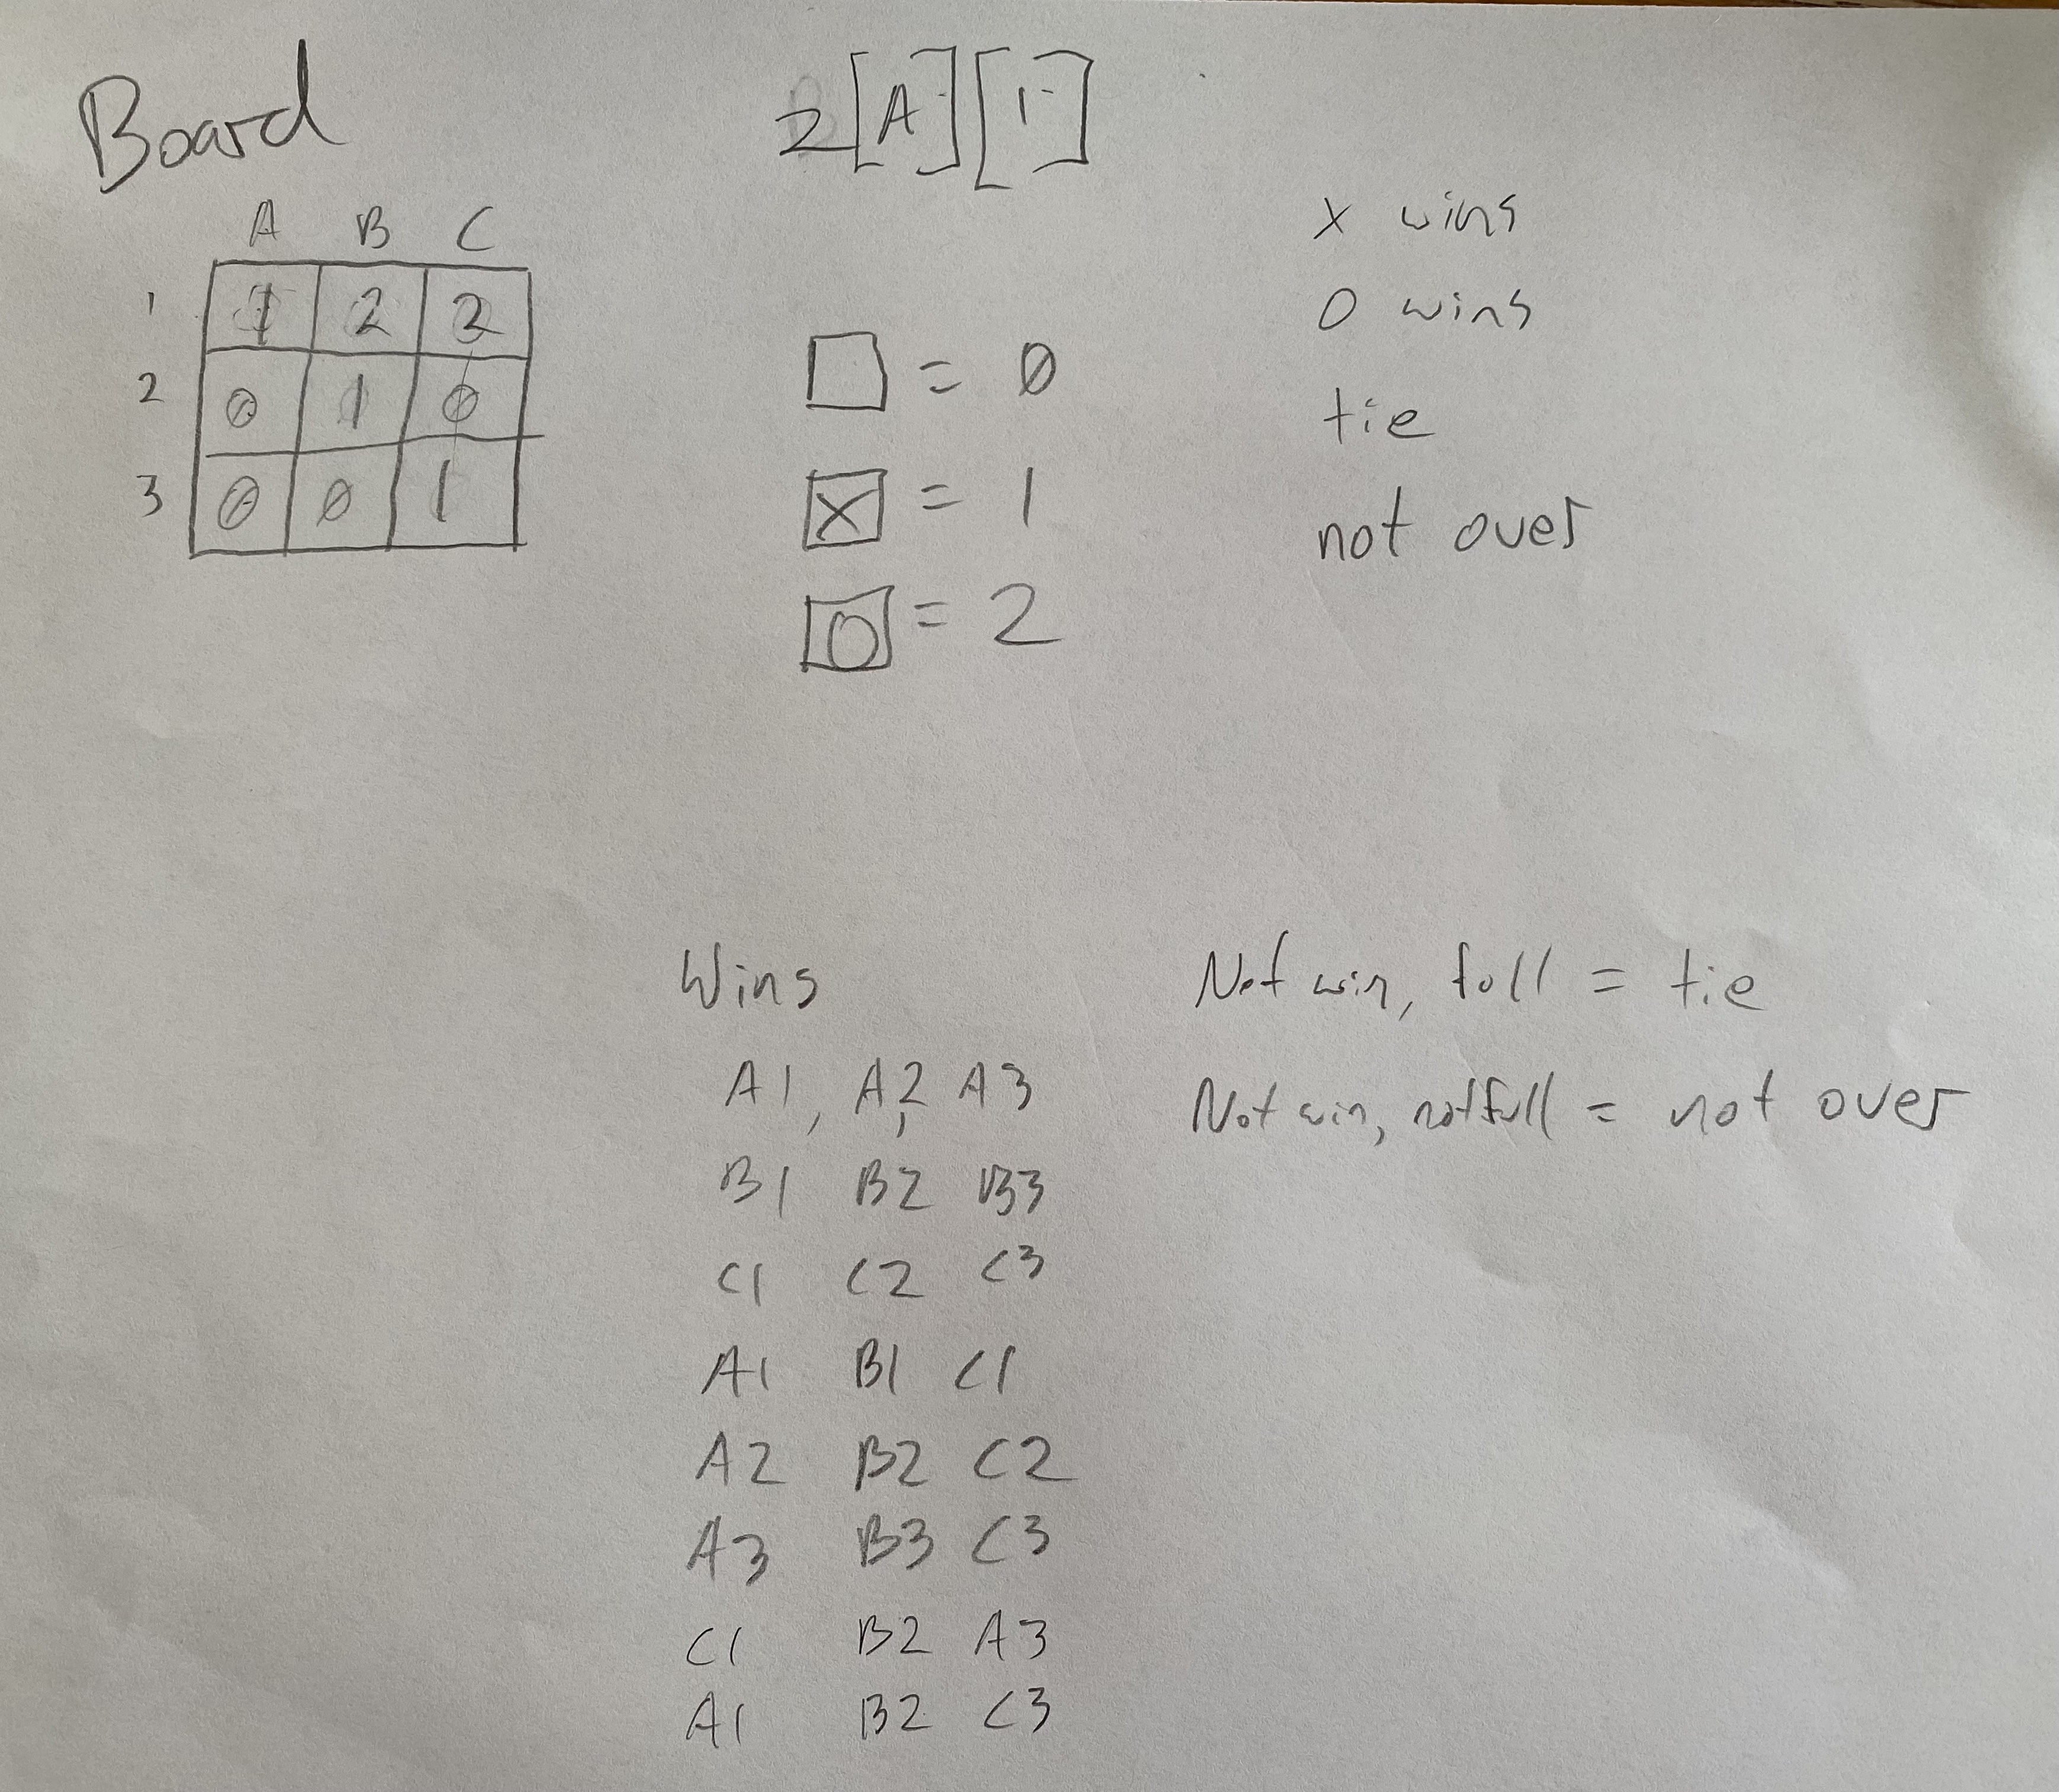 Board
2[A][1]
A B C
1 1 2 2
2 0 1 0
3 0 0 1
= 0
X = 1
O = 2
X wins
O wins
tie
not over
Wins
A1, A2, A3
B1 B2 B3
C1 C2 C3
A1 B1 C1
A2 B2 C2
A3 B3 C3
C1 B2 A3
A1 B2 C3
Not win, full = tie
Not win, not full = not over